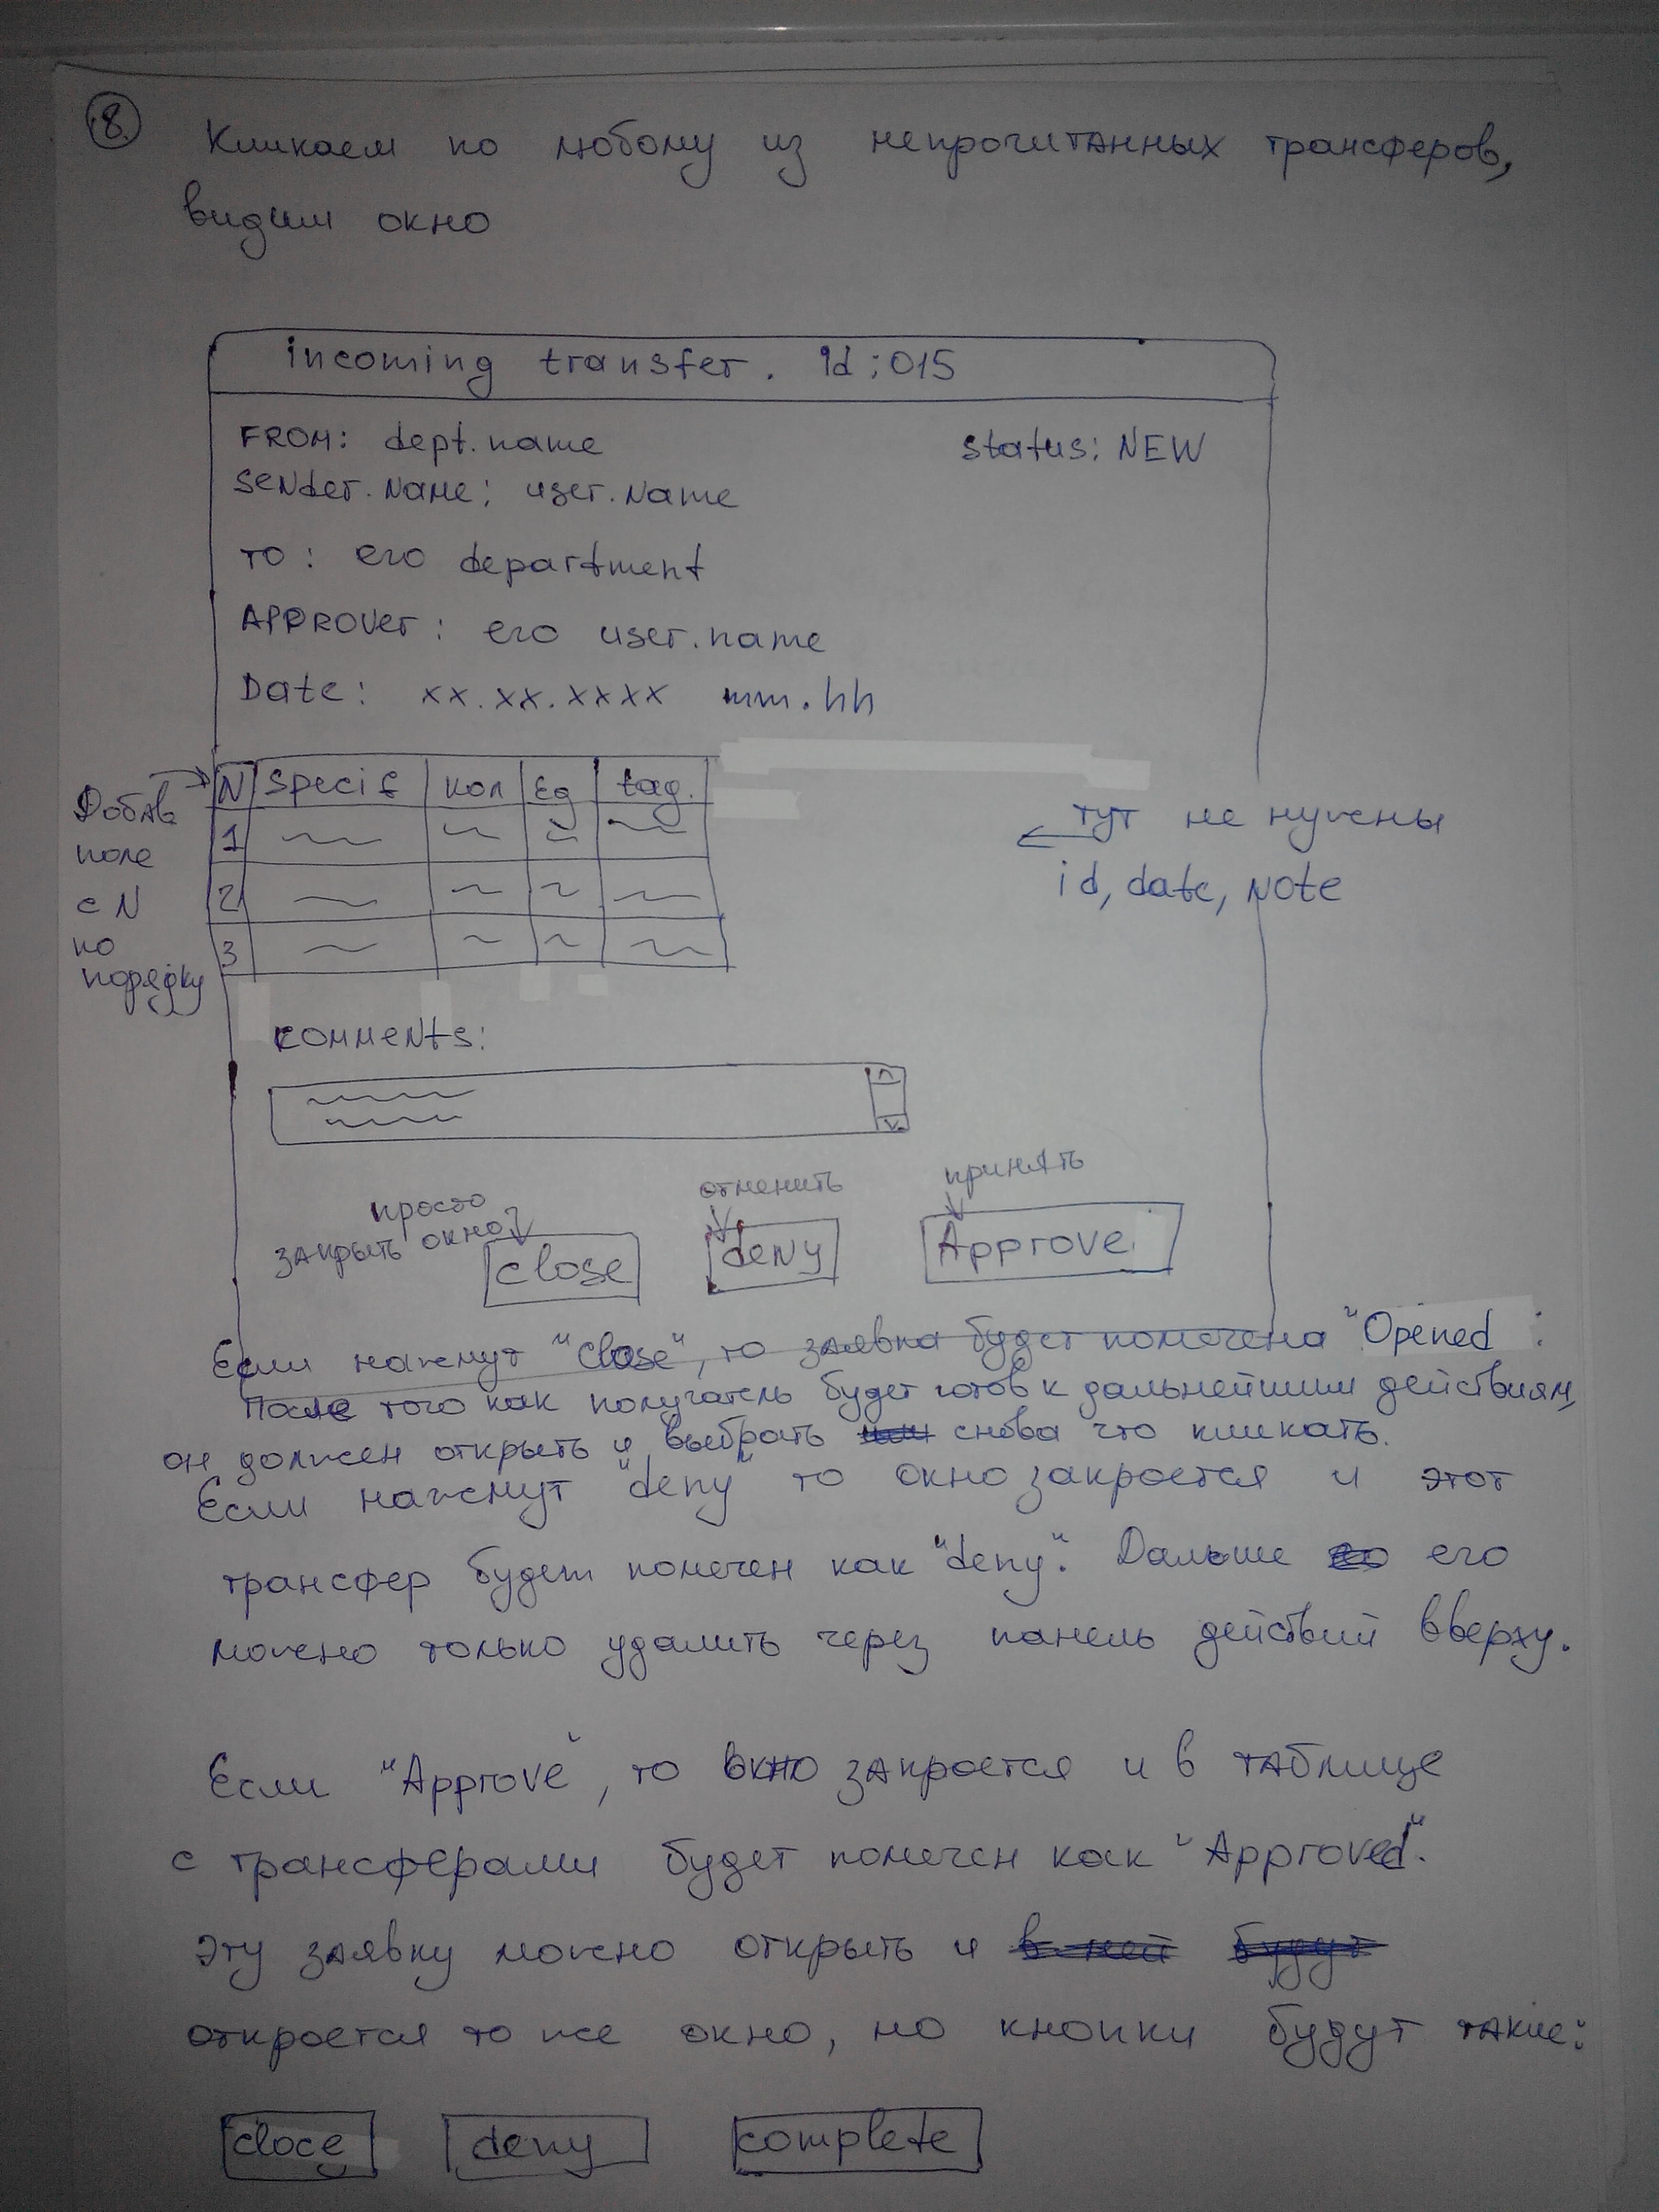 8.
Кликаем по любому из непрочитанных трансферов,
видим окно
incoming transfer. Id:015
FROM: dept.name status: NEW
Sender.Name: user.Name
TO: его department
APPROVer: его user.name
Date: xx.xx.xxxx mm.hh
Добавь
поле
с N
по
порядку
N specif кол Ед tag.
1
2
3
тут не нужны
id, date, Note
comments:
просто
закрыть окно
отменить
принять
close deny Approve
Если нажмут "Close", то заявка будет помечена "Opened
После того как получатель будет готов к дальнейшим действиям,
он должен открыть и выбрать снова что кликать.
Если нажмут "deny" то окно закроется и этот
трансфер будет помечен как "deny". Дальше его
можно только удалить через панель действий вверху.
Если "Approve", то окно закроется и в таблице
с трансферами будет помечен как "Approved".
Эту заявку можно открыть и в ней будут
откроется то же окно, но кнопки будут такие:
cloce deny complete